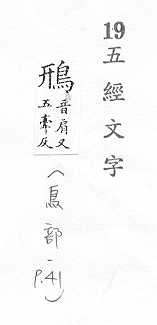 19
五經文字
鳽
音肩又
五反
(鳥部-p.41)